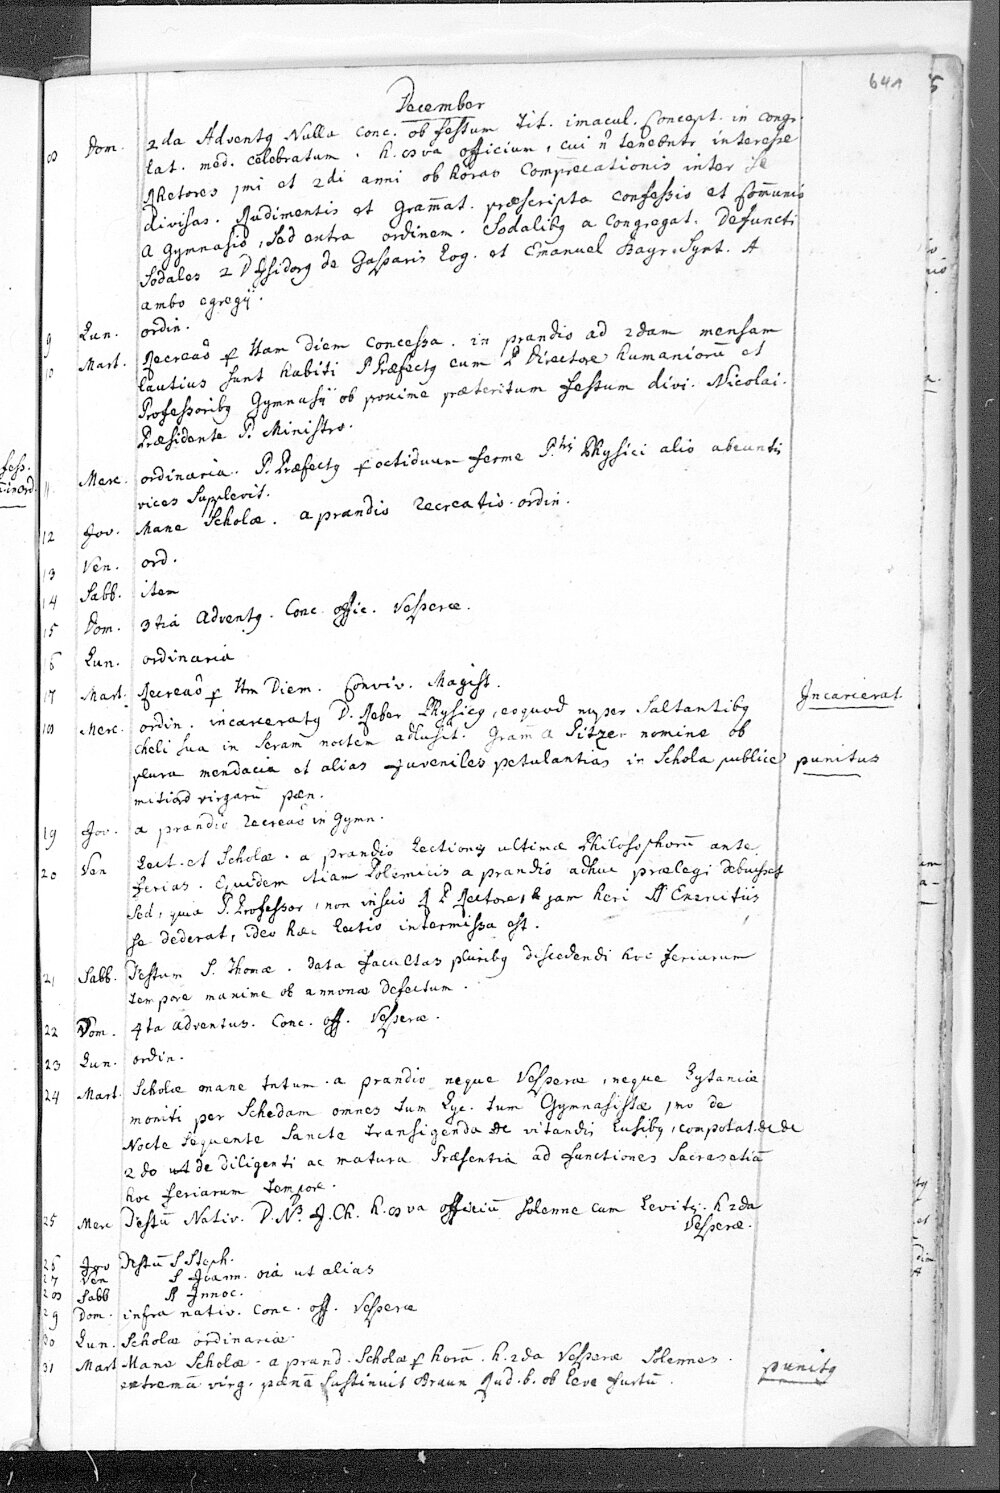 64A
December
8 Dom. 2da Adventq Nulla Conc. ob festum Tit. imacul. Concept. in Congr.
lat. med. celebratum. h. 8va officium, cui n tenebntr interesse
Rhetores 1mi et 2di anni ob horas Comprecationis inter se
divisas. Rudimentis et Gramat. præscripta confessio et Comunio
a Gymnasio, sed extra ordinem. Sodalibq a Congregat. Defuncti
Sodales 2 D Isidorq de Gasparis Log. et Emanuel Bayr. Synt. A
ambo egregij.
9 Lun. ordin.
10 Mart. Recreao p Itam Diem Concessa. in prandio ad 2dam mensam
Lautius sunt habiti P Præfectq cum P Directore humanioru et
Professoribq Gymnasij ob proxime præteritum festum divi Nicolai.
Præsidente P. Ministro.
11. Merc. ordinaria. P. Præfectq p octiduum ferme P. Physici alio abeuntis
vices supplevit.
12 Jov. Mane Scholæ. a prandio recreatio ordin.
13 Ven. ord.
14 Sabb. item
15 Dom. 3tia Adventq. Conc. offic. Vesperæ.
16 Lun. ordinaria
17 Mart. Recreao p Itm Diem. Conviv. Magist.
18 Merc. ordin. incarceratq D. Reber Physicq, eoquod nuper Saltantibq
cheli sua in seram noctem adlusit. Gram A Pitzer nomine ob
plura mendacia et alias juveniles petulantias in Schola publice
mitiori virgaru pæn.
Incarcerat.
punitus
19 Jov. a prandio recreao in Gymn.
20 Ven Lect. et Scholæ. a prandio Lectiones ultimæ Philosophoru ante
ferias. Equidem etiam Polemicis a prandio adhuc prælegi debuisset
sed, quia P. Professor, non inscio R P Rectore, jam heri SS Exercitiis
se dederat, ideo hæc lectio intermissa est.
21 Sabb. Festum S. Thomæ. data facultas pluribq discedendi hoc feriarum
tempore maxime ob annonæ defectum.
22 Dom. 4ta adventus. Conc. off. Vesperæ.
23 Lun. ordin.
24 Mart. Scholæ mane tntum. a prandio neque Vesperæ, neque Lytaniæ
moniti per Schedam omnes tum Lyc. tum Gymnasistæ, 1mo de
Nocte sequente Sancte transigenda de vitandis lusibq, compotat. &c &c
2do ut de diligenti ac matura Præsentia ad functiones Sacras etia
hoc feriarum tempore.
25 Merc Festu Nativ. D. N. J. Ch. h. 8va officiu solenne cum Levitis. h 2da
Vesperæ.
26 Jov Festu S Steph.
27 Ven S Joann. oia ut alias
28 Sabb SS Innoc.
29 Dom. infra nativ. Conc. off. Vesperæ
30 Lun. Scholæ ordinariæ.
31 Mart Mane Scholæ. a prand. Scholæ p hora. h. 2da Vesperæ Solennes.
extrema virg. pæna sustinuit Braun Rud. b. ob leve furtu.
punitq